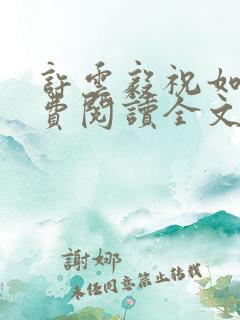 許雲毅祝如
費閱讀全文
謝娜
未任同意禁止轉載